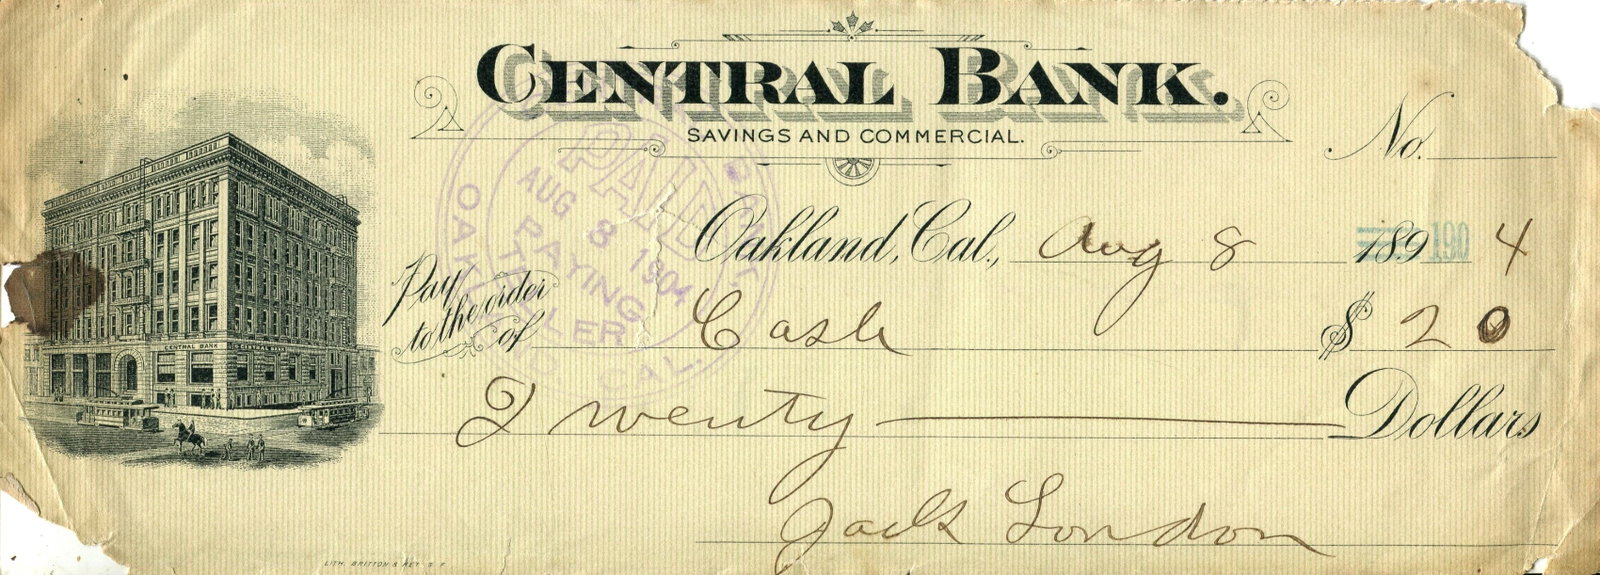 CENTRAL BANK.
SAVINGS AND COMMERCIAL.
No.
Oakland, Cal., Aug 8 189 190 4
Pay to the order of Cash $ 20
Twenty Dollars
Jack London
CENTRAL BANK CENTRAL BANK
PAID
AUG 8 1904
PAYING
TELLER
OAKLAND, CAL.
LITH. BRITTON & REY. S. F.